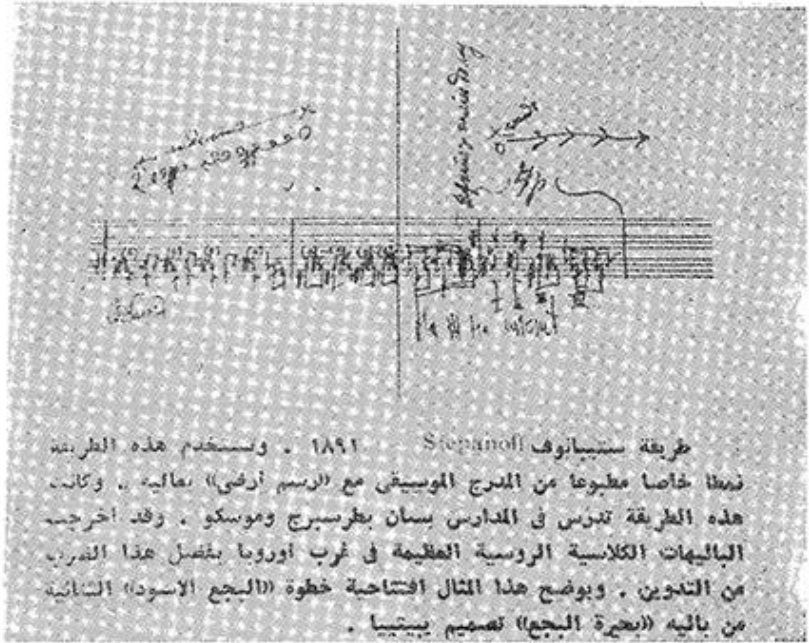 طريقة ستيبانوف Stepanoff ١٨٩١ . وتستخدم هذه الطريقة
نمطا خاصا مطبوعا من المدرج الموسيقى مع «رسم أرضى» بعاليه . وكانت
هذه الطريقة تدرس فى المدارس بسان بطرسبرج وموسكو . وقد أخرجت
الباليهات الكلاسية الروسية العظيمة فى غرب أوروبا بفضل هذا الضرب
من التدوين . ويوضح هذا المثال افتتاحية خطوة «البجع الاسود» الثنائية
من باليه «بحيرة البجع» تصميم بيتيبا .